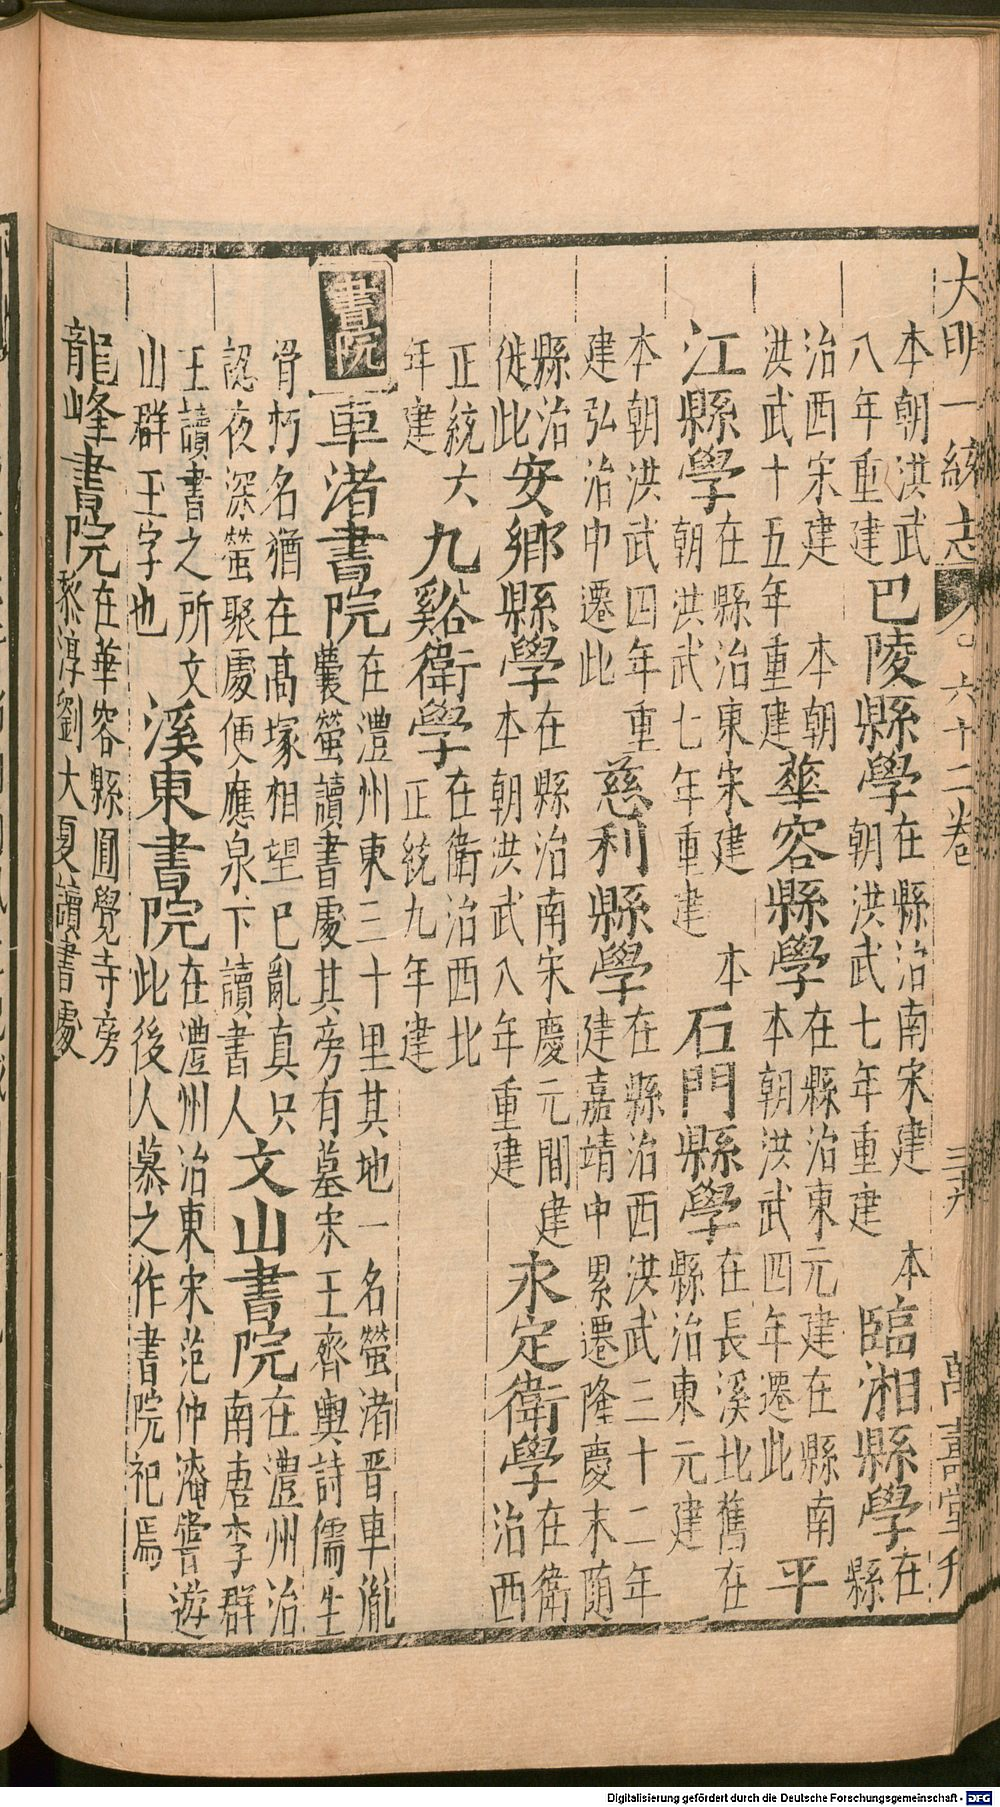 大明一統志 六十二卷 萬壽堂刊
本朝洪武八年重建 巴陵縣學 在縣治南宋建 本朝洪武七年重建 臨湘縣學 在縣
治西宋建 本朝洪武十五年重建 華容縣學 在縣治東元建在縣南本朝洪武四年遷此 平
江縣學 在縣治東宋建 本朝洪武七年重建 石門縣學 在長溪北舊在縣治東元建
本朝洪武四年重建弘治中遷此 慈利縣學 在縣治西洪武三十二年建嘉靖中累遷隆慶末随
縣治徙此 安鄉縣學 在縣治南宋慶元間建本朝洪武八年重建 永定衛學 在衛治西
正統大年建 九谿衛學 在衛治西北正統九年建
書院 車渚書院 在澧州東三十里其地一名螢渚晋車胤囊螢讀書處其旁有墓宋王齊輿詩儒生
骨朽名猶在高塚相望已亂真只認夜深螢聚處便應泉下讀書人 文山書院 在澧州治南唐李群
玉讀書之所文山群玉字也 溪東書院 在澧州治東宋范仲淹嘗遊此後人慕之作書院祀焉
龍峰書院 在華容縣圓覺寺旁黎淳劉大夏讀書處
Digitalisierung gefördert durch die Deutsche Forschungsgemeinschaft - DFG